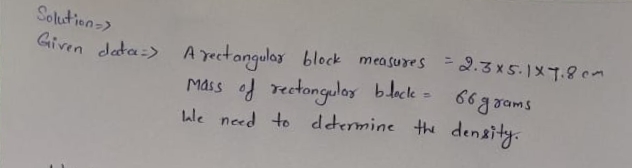 Solution=>
Given data=> A rectangular block measures = 2.3×5.1×7.8 cm
Mass of rectangular block = 66 grams
We need to determine the density.